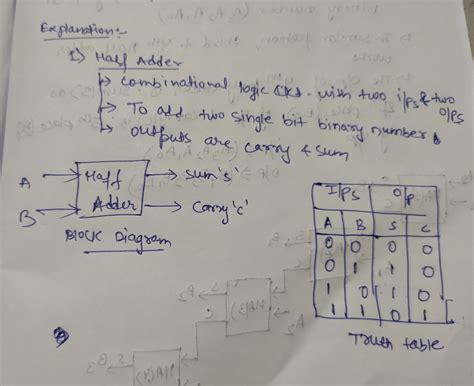 Explanation:-
1) Half Adder
→ Combinational logic CKt. with two i/ps & two o/ps
→ To add two single bit binary numbers
→ outputs are carry & sum
A → Half Adder → sum 's'
B → → carry 'c'
Block Diagram
I/Ps O/P
A B S C
0 0 0 0
0 1 1 0
1 0 1 0
1 1 0 1
Truth table